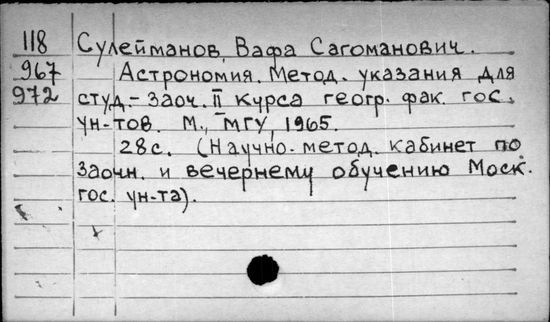 118 Сулейманов, Вафа Сагоманович.
967 Астрономия. Метод. указания для
972 студ.-заоч. II курса геогр. фак. гос.
ун-тов. М., МГУ, 1965.
28с. (Научно-метод. кабинет по
заочн. и вечернему обучению Моск.
гос. ун-та).